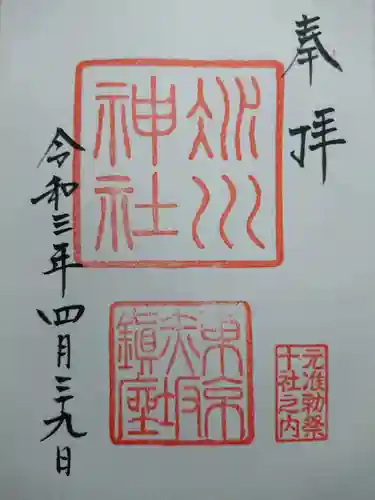 奉拝
氷川
神社
東京
赤坂
鎮座
元准勅祭
十社之内
令和三年四月二十九日